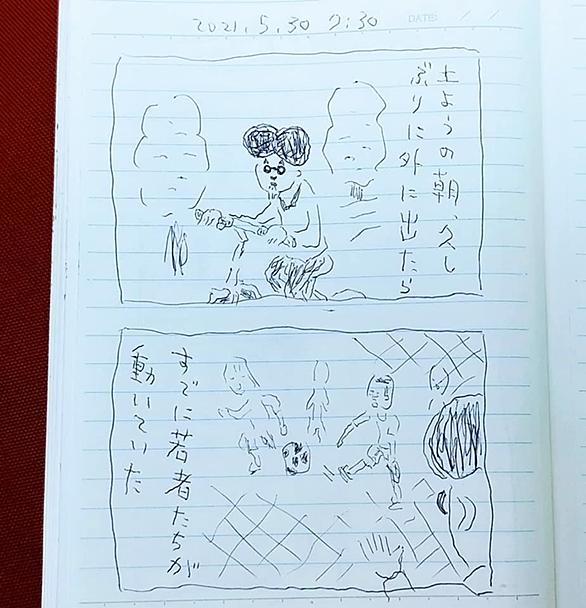 2021.5.30 7:30
DATE: / /
土ようの朝、久し
ぶりに外に出たら
すでに若者たちが
動いていた